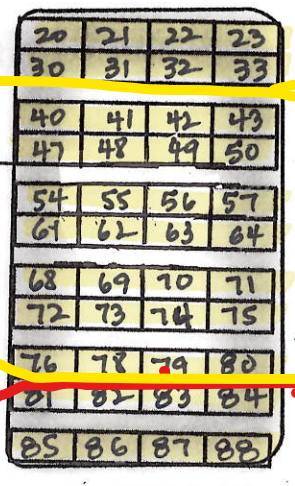 20 21 22 23
30 31 32 33
40 41 42 43
47 48 49 50
54 55 56 57
61 62 63 64
68 69 70 71
72 73 74 75
76 78 79 80
81 82 83 84
85 86 87 88